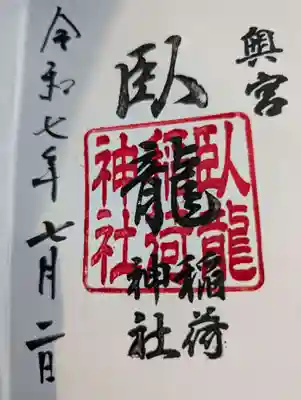 奥宮
臥龍稲荷神社
臥龍稲荷神社
令和七年七月二日